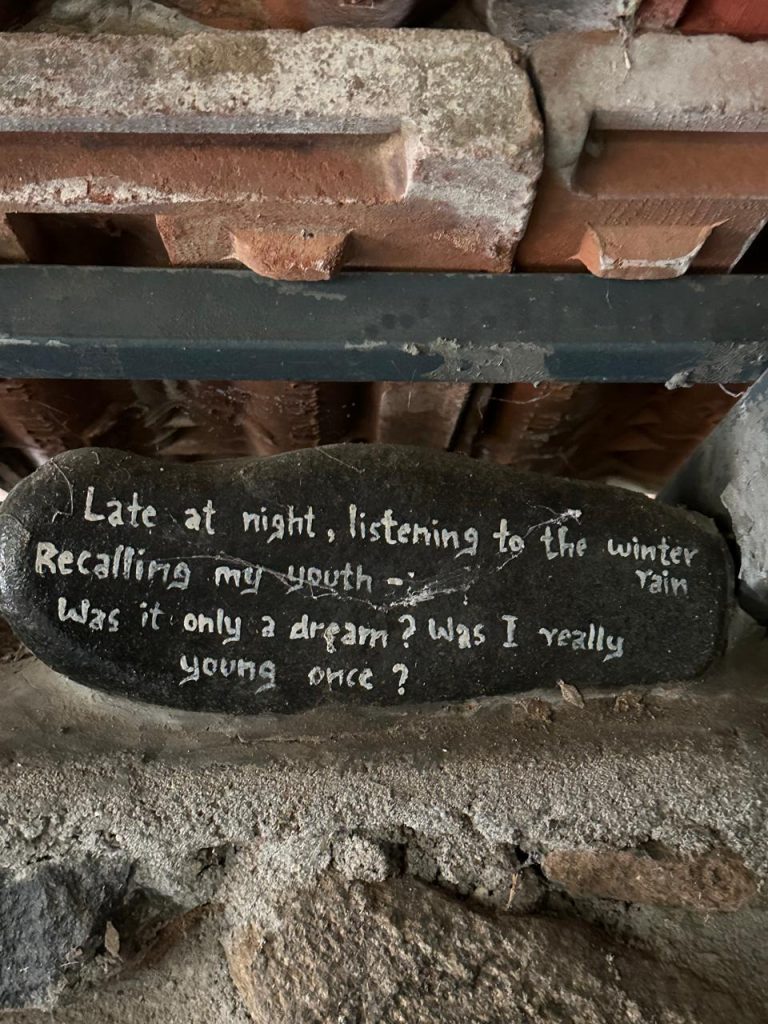 Late at night, listening to the winter
rain
Recalling my youth -
Was it only a dream? Was I really
young once?